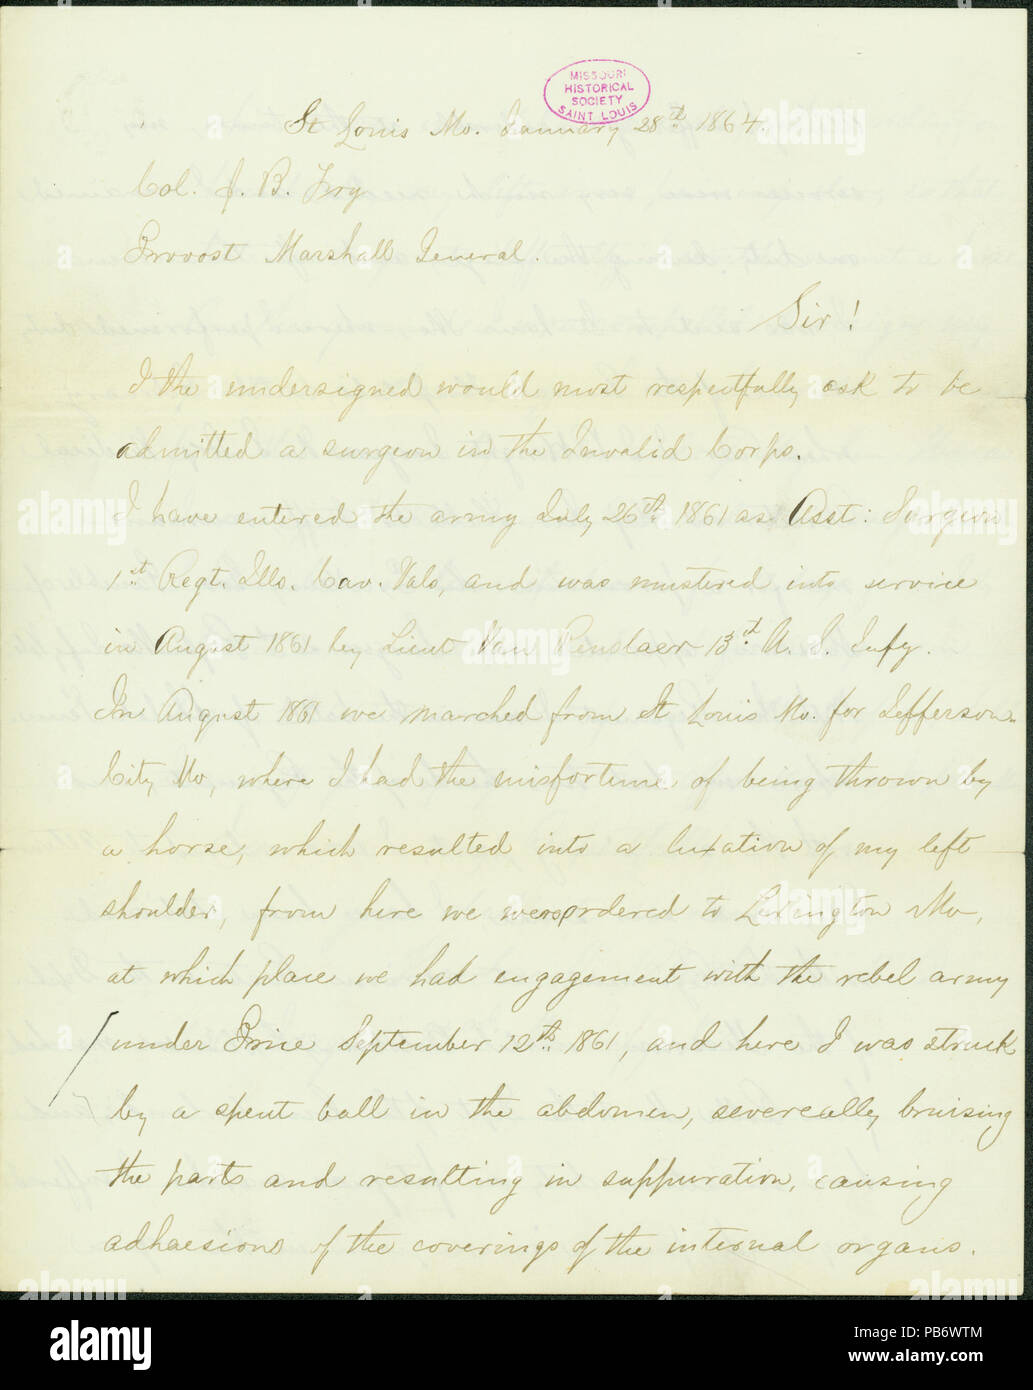 MISSOURI
HISTORICAL
SOCIETY
SAINT LOUIS
St Louis Mo. January 28th 1864.
Col. J. B. Fry
Provost Marshall General.
Sir!
I the undersigned would most respectfully ask to be
admitted a surgeon in the Invalid Corps.
I have entered the army July 26th 1861 as Asst: Surgeon
1st Regt. Ills. Cav. Vols, and was mustered into service
in August 1861 by Lieut Van Renslaer 13th U. S. Infy.
In August 1861 we marched from St Louis Mo. for Jefferson-
City Mo, where I had the misfortune of being thrown by
a horse, which resulted into a luxation of my left
shoulder, from here we were ordered to Lexington Mo,
at which place we had engagement with the rebel army
under Price September 12th 1861, and here I was struck
by a spent ball in the abdomen, severeally bruising
the parts and resulting in suppuration, causing
adhaesions of the coverings of the internal organs.
alamy
Image ID: PB6WTM
www.alamy.com